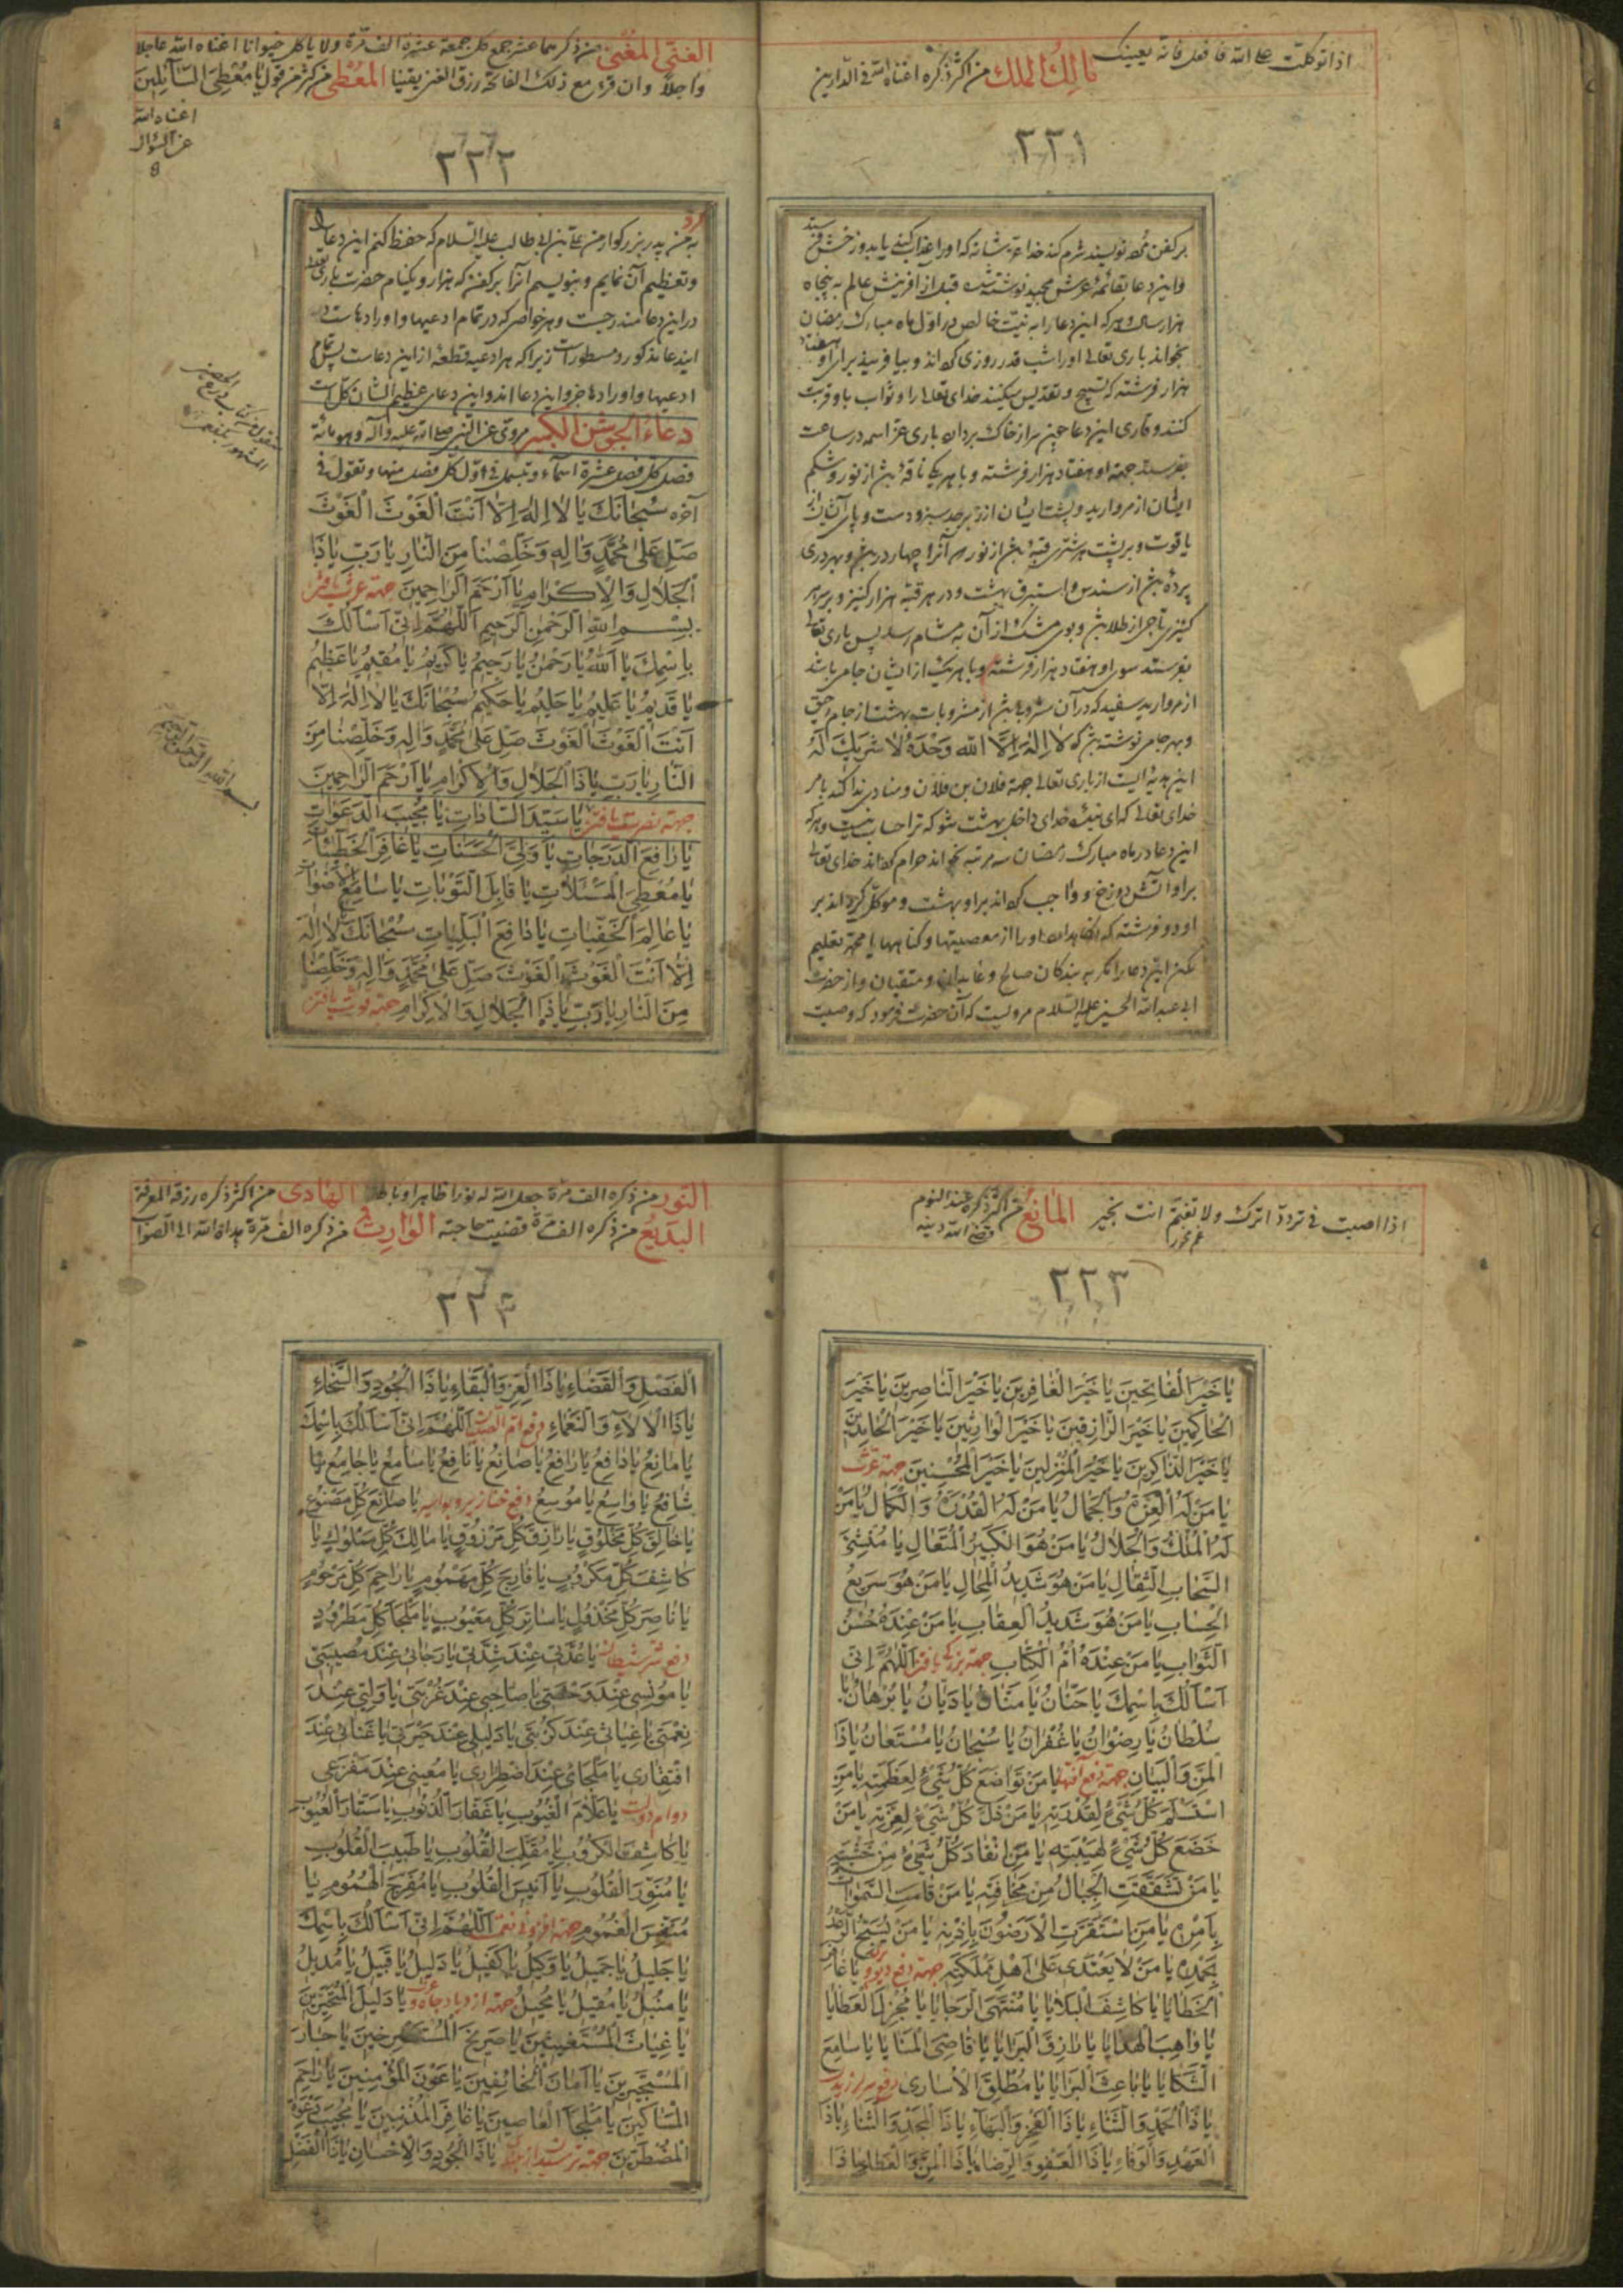 اذا توكلت على الله فافعل فانه يعينك مالك الملك من اكثر ذكره اغناه الله فى الدارين
٢٢١
بركفن خود نويسد شرم كند خداى
واين دعا بقائمهٔ عرش مجيد نوشته شده قبل از آفرينش عالم به پنجاه
هزار سال و هر كه اين دعا را به نيت خالص در اول ماه مبارك رمضان
بخواند بارى تعالى او را شب قدر روزى گرداند و بيافريند براى او هفتاد
هزار فرشته كه تسبيح و تقديس ميكنند خداى تعالى را و ثواب با و قربت
كنند وقارى اين دعا چون سر از خاك بردارد بارى عز اسمه در ساعت
بفرستد جهة او هفتاد هزار فرشته و با هر يكى ناقهٔ از نور و شكم
ايشان از مرواريد و پشت ايشان از زبرجد سبز و دست و پاى ايشان از
ياقوت و بر پشت هر شترى قبهٔ از نور و آنرا چهار در و بهر درى
پردهٔ از سندس و استبرق بهشت و در هر قبه هزار كنيز و بر سر هر
كنيزى تاجى از طلا و بوى مشك از آن به مشام رسد پس بارى تعالى
بفرستد سوى او هفتاد هزار فرشته و با هر يك از ايشان جامى باشد
از مرواريد سفيد كه در آن از مشروبات بهشت از جام رحيق
و بهر جامى نوشته كه لا اله الا الله وحده لا شريك له
اين هديه ايست از بارى تعالى جهة فلان بن فلان و منادى ندا كند بامر
خداى تعالى كه اى بندهٔ خداى داخل بهشت شو كه ترا حساب نيست و هر كه
اين دعا در ماه مبارك رمضان سه مرتبه بخواند حرام گرداند خداى تعالى
بر او آتش دوزخ و واجب گرداند بر او بهشت و موكل گرداند بر
او دو فرشته كه نگاهدارند او را از معصيتها و گناهها يا محمد تعليم
مكن اين دعا را مگر به بندگان صالح و عابدان و متقيان و از حضرت
ابى عبد الله الحسين عليه السلام مرويست كه آن حضرت فرمود كه وصيت
الغنى المغنى من ذكرهما عشر جمع كل جمعة عشرة الف مرة ولا ياكل حيوانا اغناه الله عاجلا
وآجلا وان قرء مع ذلك الفاتحة رزق الغنى يقينا المعطى من كثر من قول يا معطى السائلين
اغناه الله
عن السؤال
٢٢٢
كرد
به من پدر بزرگوار من على بن ابى طالب عليه السلام كه حفظ كنم اين دعا را
و تعظيم آن نمايم و بنويسم آنرا بر كفن كه هزار و يكنام حضرت بارى تعالى
در اين دعا مندرجست و هر خواص كه در تمام ادعيها و اوراد هاست در
ايندعا مذكور و مسطورست زيرا كه هر ادعيه قطعهٔ از اين دعاست پس تمام
ادعيها و اورادها جزو اين دعا اند و اين دعاى عظيم الشان كل است
دعاء الجوشن الكبير مروى عن النبى صلى الله عليه وآله وهو مائة
فصل كل فصل عشرة اسماء وتبسمل فى اول كل فصل منها وتقول فى
آخره سبحانك يا لا اله الا انت الغوث الغوث
صل على محمد واله وخلصنا من النار يا رب يا ذا
الجلال والاكرام يا ارحم الراحمين جهة عزت يافتن
بسم الله الرحمن الرحيم اللهم انى اسالك
باسمك يا الله يا رحمن يا رحيم يا كريم يا مقيم يا عظيم
يا قديم يا عليم يا حليم يا حكيم سبحانك يا لا اله الا
انت الغوث الغوث صل على محمد واله وخلصنا من
النار يا رب يا ذا الجلال والاكرام يا ارحم الراحمين
جهة نصرت يافتن يا سيد السادات يا مجيب الدعوات
يا رافع الدرجات يا ولى الحسنات يا غافر الخطيئات
يا معطى المسئلات يا قابل التوبات يا سامع الاصوات
يا عالم الخفيات يا دافع البليات سبحانك لا اله
الا انت الغوث الغوث صل على محمد واله وخلصنا
من النار يا رب يا ذا الجلال والاكرام جهة قوت يافتن
بسم الله الرحمن الرحيم
اذا اصبت فى تردد اترك ولا تغتم انت بخير المانع من اكثر ذكره عند النوم
قضى الله دينه
٢٢٣
يا خير الفاتحين يا خير الغافرين يا خير الناصرين يا خير
الحاكمين يا خير الرازقين يا خير الوارثين يا خير الحامدين
يا خير الذاكرين يا خير المنزلين يا خير المحسنين جهة عزت
يا من له العزة والجمال يا من له القدرة والكمال يا من
له الملك والجلال يا من هو الكبير المتعال يا منشئ
السحاب الثقال يا من هو شديد المحال يا من هو سريع
الحساب يا من هو شديد العقاب يا من عنده حسن
الثواب يا من عنده ام الكتاب جهة بزركى يافتن اللهم انى
اسالك باسمك يا حنان يا منان يا ديان يا برهان يا
سلطان يا رضوان يا غفران يا سبحان يا مستعان يا ذا
المن والبيان جهة دفع آفتها يا من تواضع كل شئ لعظمته يا من
استسلم كل شئ لقدرته يا من ذل كل شئ لعزته يا من
خضع كل شئ لهيبته يا من انقاد كل شئ من خشيته
يا من تشققت الجبال من مخافته يا من قامت السموات
بامره يا من استقرت الارضون باذنه يا من يسبح الرعد
بحمده يا من لا يعتدى على اهل مملكته جهة دفع ديو و پرى يا غافر
الخطايا يا كاشف البلايا يا منتهى الرجايا يا مجزل العطايا
يا واهب الهدايا يا رازق البرايا يا قاضى المنايا يا سامع
الشكايا يا باعث البرايا يا مطلق الاسارى
يا ذا الحمد والثناء يا ذا الفخر والبهاء يا ذا المجد والسناء يا ذا
العهد والوفاء يا ذا العفو والرضا يا ذا المن والعطا يا ذا
النور من ذكره الف مرة جعل الله له نورا ظاهرا وباطنا الهادى من اكثر ذكره رزقه المعرفة
البديع من ذكره الف مرة قضيت حاجته الوارث من ذكره الف مرة هداه الله الى الصواب
٢٢٤
الفصل والقضاء يا ذا العز والبقاء يا ذا الجود والسخاء
يا ذا الالاء والنعماء اللهم انى اسالك باسمك
يا مانع يا دافع يا رافع يا صانع يا نافع يا سامع يا جامع يا
شافع يا واسع يا موسع دفع خنازير و بواسير يا صانع كل مصنوع
يا خالق كل مخلوق يا رازق كل مرزوق يا مالك كل مملوك يا
كاشف كل مكروب يا فارج كل مهموم يا راحم كل مرحوم
يا ناصر كل مخذول يا ساتر كل معيوب يا ملجأ كل مطرود
دفع شر شيطان يا عدتى عند شدتى يا رجائى عند مصيبتى
يا مونسى عند وحشتى يا صاحبى عند غربتى يا وليى عند
نعمتى يا غياثى عند كربتى يا دليلى عند حيرتى يا غنائى عند
افتقارى يا ملجائى عند اضطرارى يا معينى عند مفزعى
دوام دولت يا علام الغيوب يا غفار الذنوب يا ستار العيوب
يا كاشف الكروب يا مقلب القلوب يا طبيب القلوب
يا منور القلوب يا انيس القلوب يا مفرج الهموم يا
منفس الغموم جهة افزونى نعمت اللهم انى اسالك باسمك
يا جليل يا جميل يا وكيل يا كفيل يا دليل يا قبيل يا مديل
يا منيل يا مقيل يا محيل جهة ازدياد جاه و عزت يا دليل المتحيرين
يا غياث المستغيثين يا صريخ المستصرخين يا جار
المستجيرين يا امان الخائفين يا عون المؤمنين يا راحم
المساكين يا ملجأ العاصين يا غافر المذنبين يا مجيب دعوة
المضطرين يا ذا الجود والاحسان يا ذا الفضل